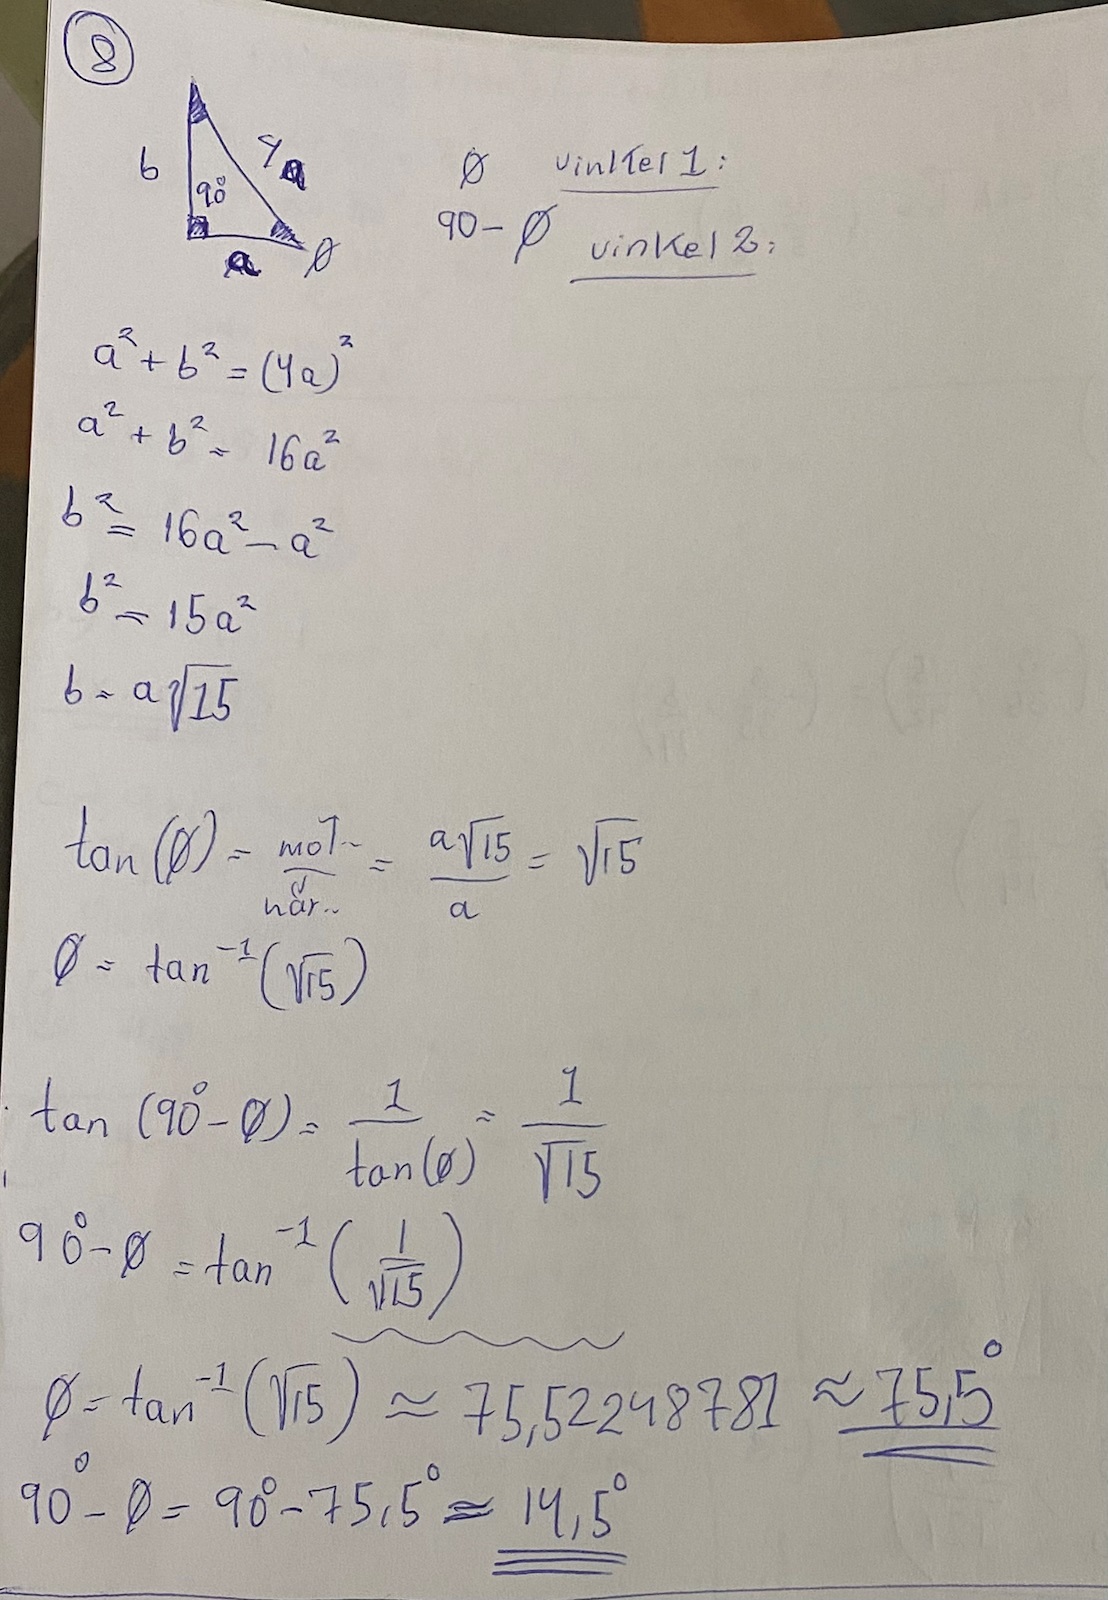 8
b
4a
90°
a
Ø
Ø vinkel 1:
90-Ø vinkel 2:
a² + b² = (4a)²
a² + b² = 16a²
b² = 16a² - a²
b² = 15a²
b = a√15
tan(Ø) = mot.. / när.. = a√15 / a = √15
Ø = tan⁻¹(√15)
tan (90°-Ø) = 1 / tan(Ø) = 1 / √15
90°-Ø = tan⁻¹(1/√15)
Ø = tan⁻¹(√15) ≈ 75,52248781 ≈ 75,5°
90° - Ø = 90° - 75,5° ≈ 14,5°